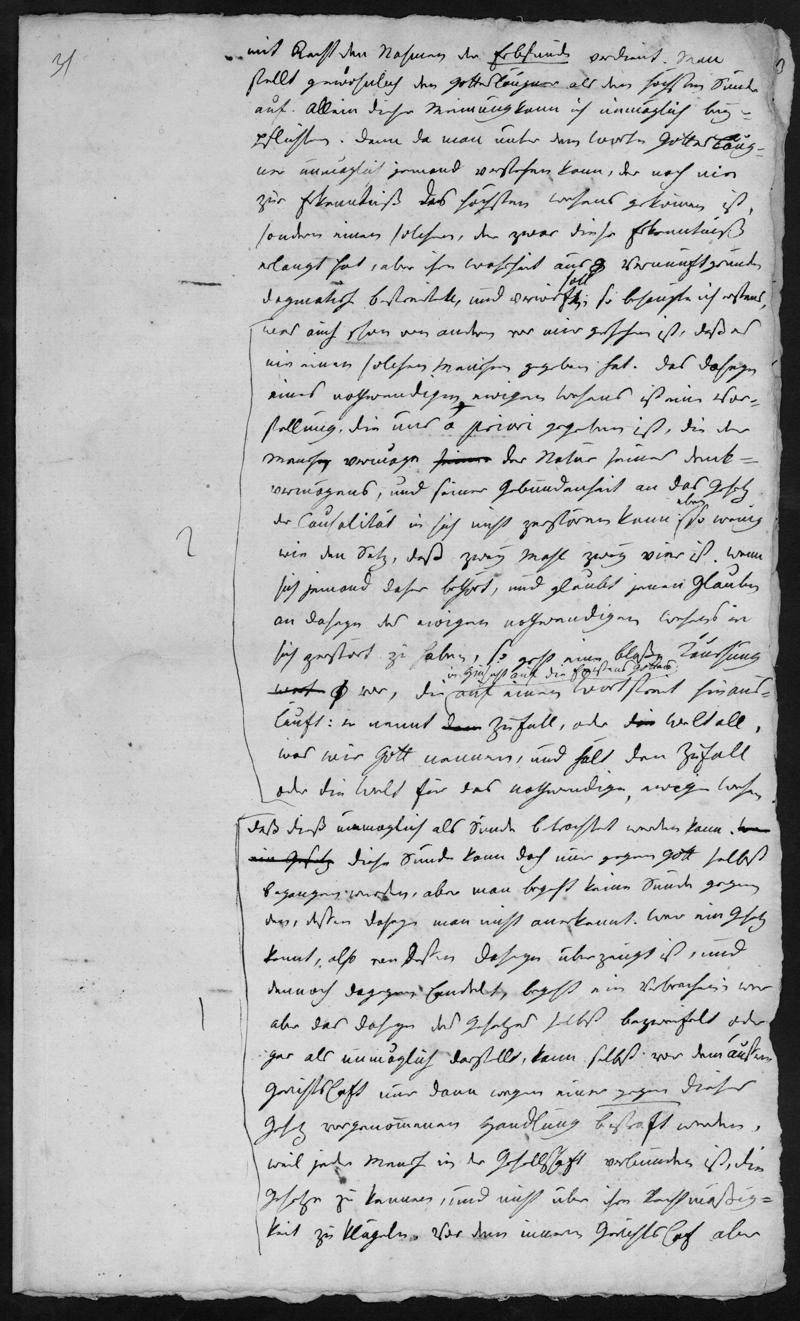 31
mit Recht den Nahmen der Erbsünde verdient. Man
stellt gewöhnlich den Gottesläugner als den höchsten Sünder
auf. Allein dieser Meinung kann ich unmöglich bey-
pflichten. Denn da man unter dem Worte Gottesläug-
ner unmöglich jemand verstehen kann, der noch nie
zur Erkenntniß des höchsten Wesens gekommen ist,
sondern einen solchen, der zwar diese Erkenntniß
erlangt hat, aber ihre Wahrheit aus Vernunftgründen
dogmatisch bestreitet, und verwirft; so behaupte ich erstens,
was auch schon von andern vor mir geschehen ist, daß es
nie einen solchen Menschen gegeben hat. Das Daseyn
eines nothwendigen ewigen Wesens ist eine Vor-
stellung, die uns a priori gegeben ist, die der
Mensch vermöge der Natur seines Denk-
vermögens, und seiner Gebundenheit an das Gesetz
der Causalität in sich nicht zerstören kann eben so wenig
2
wie den Satz, daß zwey Mahl zwey vier ist. Wenn
sich jemand daher bethört, und glaubt jenen Glauben
an Daseyn des ewigen nothwendigen Wesens in
sich zerstört zu haben, so geht eine bloße Täuschung
in Hinsicht auf die Existenz Gottes
vor, die auf einen Wortstreit hinaus-
läuft: er nennt Zufall, oder Weltall,
was wir Gott nennen, und hält den Zufall
oder die Welt für das nothwendige, ewige Wesen.
daß dieß unmöglich als Sünde betrachtet werden kann.
ein Gesetz diese Sünde kann doch nur gegen Gott selbst
begangen werden, aber man begeht keine Sünde gegen
den, dessen Daseyn man nicht anerkennt. Wer ein Gesetz
kennt, also von dessen Daseyn überzeugt ist, und
dennoch dagegen handelt, begeht ein Verbrechen; wer
1
aber das Daseyn des Gesetzes selbst bezweifelt oder
gar als unmöglich darstellt, kann selbst vor dem äußern
Gerichtshofe nur dann wegen einer gegen dieses
Gesetz vorgenommenen Handlung bestraft werden,
weil jeder Mensch in der Gesellschaft verbunden ist, die
Gesetze zu kennen, und nicht über ihre Rechtmäßig-
keit zu klügeln. Vor dem innern Gerichtshof aber